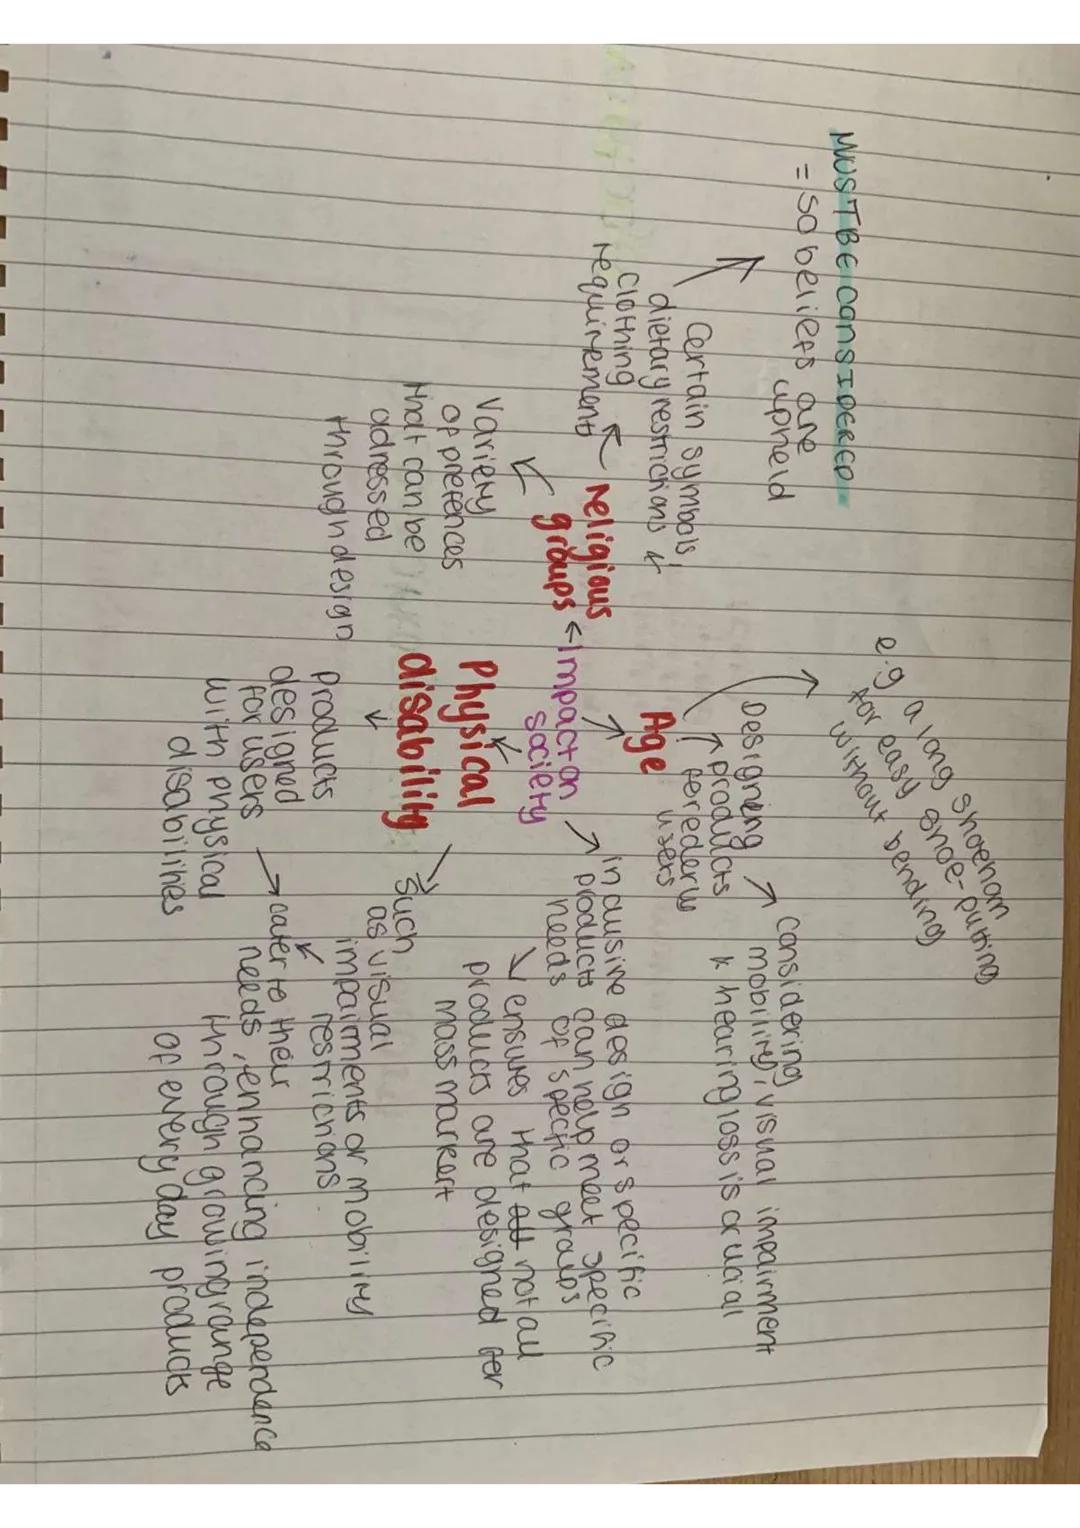 MUST BE CONSIDERED
= so beliefs are
upheld
Certain symbols,
dietary restrictions &
clothing
requirements
religious
groups
variety
of prefences
that can be
adressed
through design
Impact on
society
Age
Designing
products
for ederly
users
e.g a long shoehorn
for easy shoe-putting
without bending
considering
mobility, visual impairment
& hearing loss is crucial
inclusive design or specific
products can help meet specific
needs of specific groups
ensures that not all
products are designed for
mass market
Physical
disability
such
as visual
impairments or mobility
restrictions
products
designed
for users
with physical
disabilities
cater to their
needs, enhancing independence
through growing range
of every day products